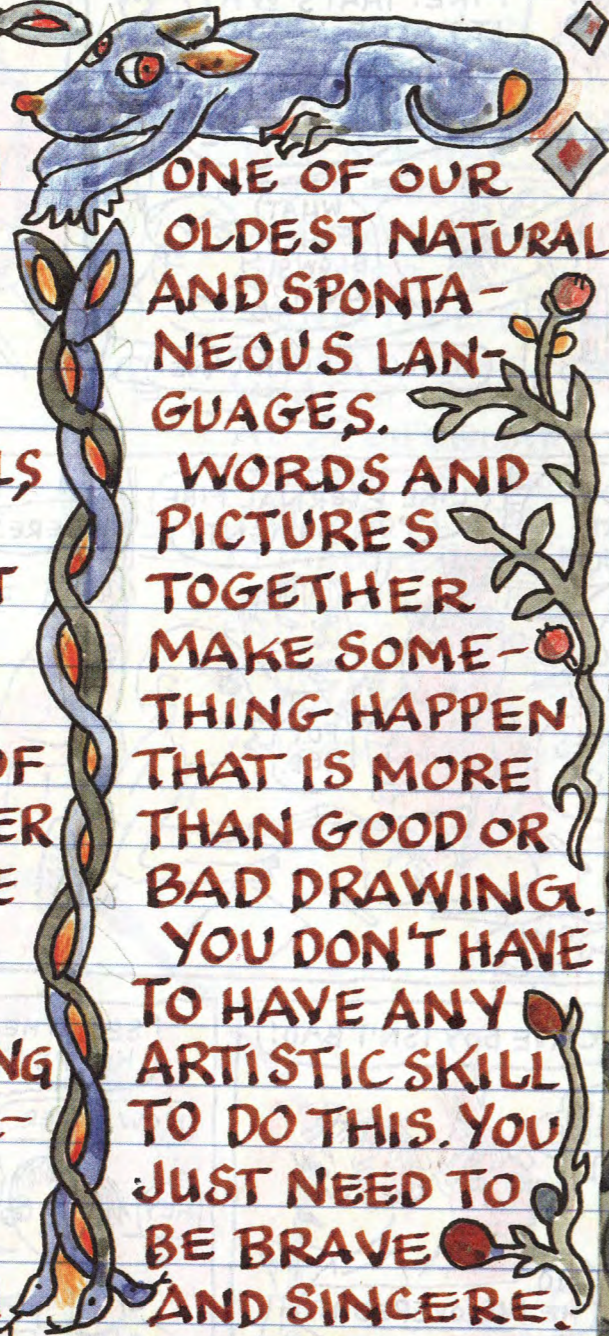 ONE OF OUR
OLDEST NATURAL
AND SPONTA-
NEOUS LAN-
GUAGES.
WORDS AND
PICTURES
TOGETHER
MAKE SOME-
THING HAPPEN
THAT IS MORE
THAN GOOD OR
BAD DRAWING.
YOU DON'T HAVE
TO HAVE ANY
ARTISTIC SKILL
TO DO THIS. YOU
JUST NEED TO
BE BRAVE
AND SINCERE.